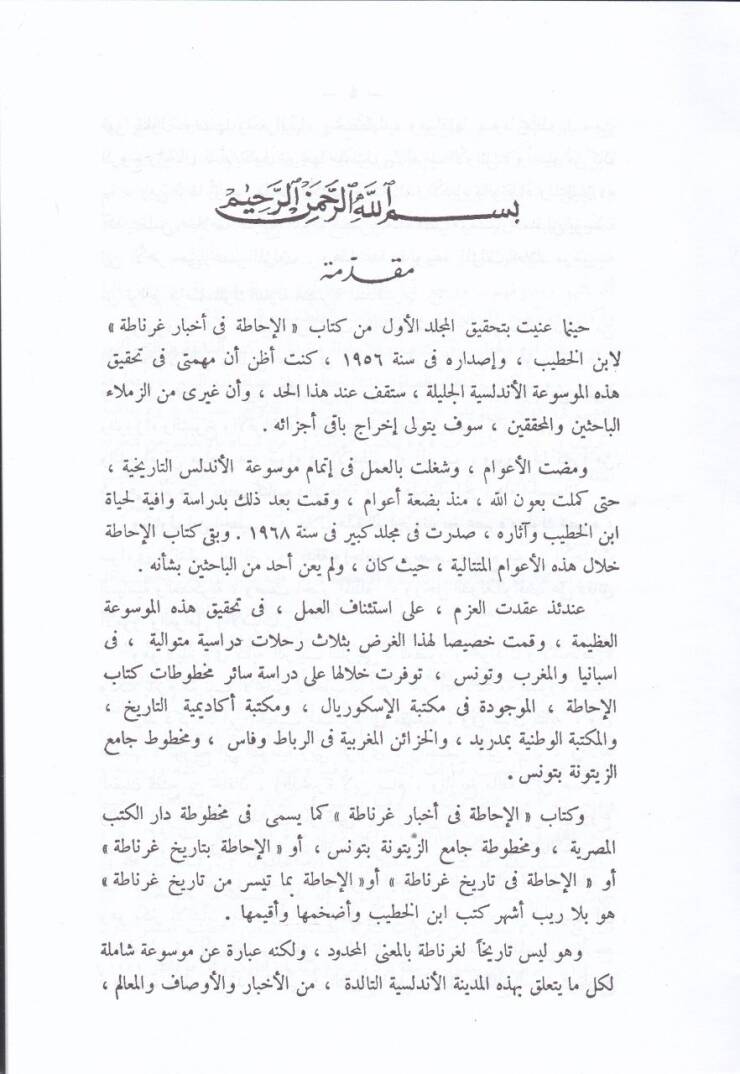 بسم الله الرحمن الرحيم
مقدمة
حينما عنيت بتحقيق المجلد الأول من كتاب « الإحاطة فى أخبار غرناطة »
لابن الخطيب ، وإصداره فى سنة ١٩٥٦ ، كنت أظن أن مهمتى فى تحقيق
هذه الموسوعة الأندلسية الجليلة ، ستقف عند هذا الحد ، وأن غيرى من الزملاء
الباحثين والمحققين ، سوف يتولى إخراج باقى أجزائه .
ومضت الأعوام ، وشغلت بالعمل فى إتمام موسوعة الأندلس التاريخية ،
حتى كملت بعون الله ، منذ بضعة أعوام ، وقمت بعد ذلك بدراسة وافية لحياة
ابن الخطيب وآثاره ، صدرت فى مجلد كبير فى سنة ١٩٦٨ . وبقى كتاب الإحاطة
خلال هذه الأعوام المتتالية ، حيث كان ، ولم يعن أحد من الباحثين بشأنه .
عندئذ عقدت العزم ، على استئناف العمل ، فى تحقيق هذه الموسوعة
العظيمة ، وقمت خصيصا لهذا الغرض بثلاث رحلات دراسية متوالية ، فى
اسبانيا والمغرب وتونس ، توفرت خلالها على دراسة سائر مخطوطات كتاب
الإحاطة ، الموجودة فى مكتبة الإسكوريال ، ومكتبة أكاديمية التاريخ ،
والمكتبة الوطنية بمدريد ، والخزائن المغربية فى الرباط وفاس ، ومخطوط جامع
الزيتونة بتونس .
وكتاب « الإحاطة فى أخبار غرناطة » كما يسمى فى مخطوطة دار الكتب
المصرية ، ومخطوطة جامع الزيتونة بتونس ، أو « الإحاطة بتاريخ غرناطة »
أو « الإحاطة فى تاريخ غرناطة » أو« الإحاطة بما تيسر من تاريخ غرناطة »
هو بلا ريب أشهر كتب ابن الخطيب وأضخمها وأقيمها .
وهو ليس تاريخاً لغرناطة بالمعنى المحدود ، ولكنه عبارة عن موسوعة شاملة
لكل ما يتعلق بهذه المدينة الأندلسية التالدة ، من الأخبار والأوصاف والمعالم ،